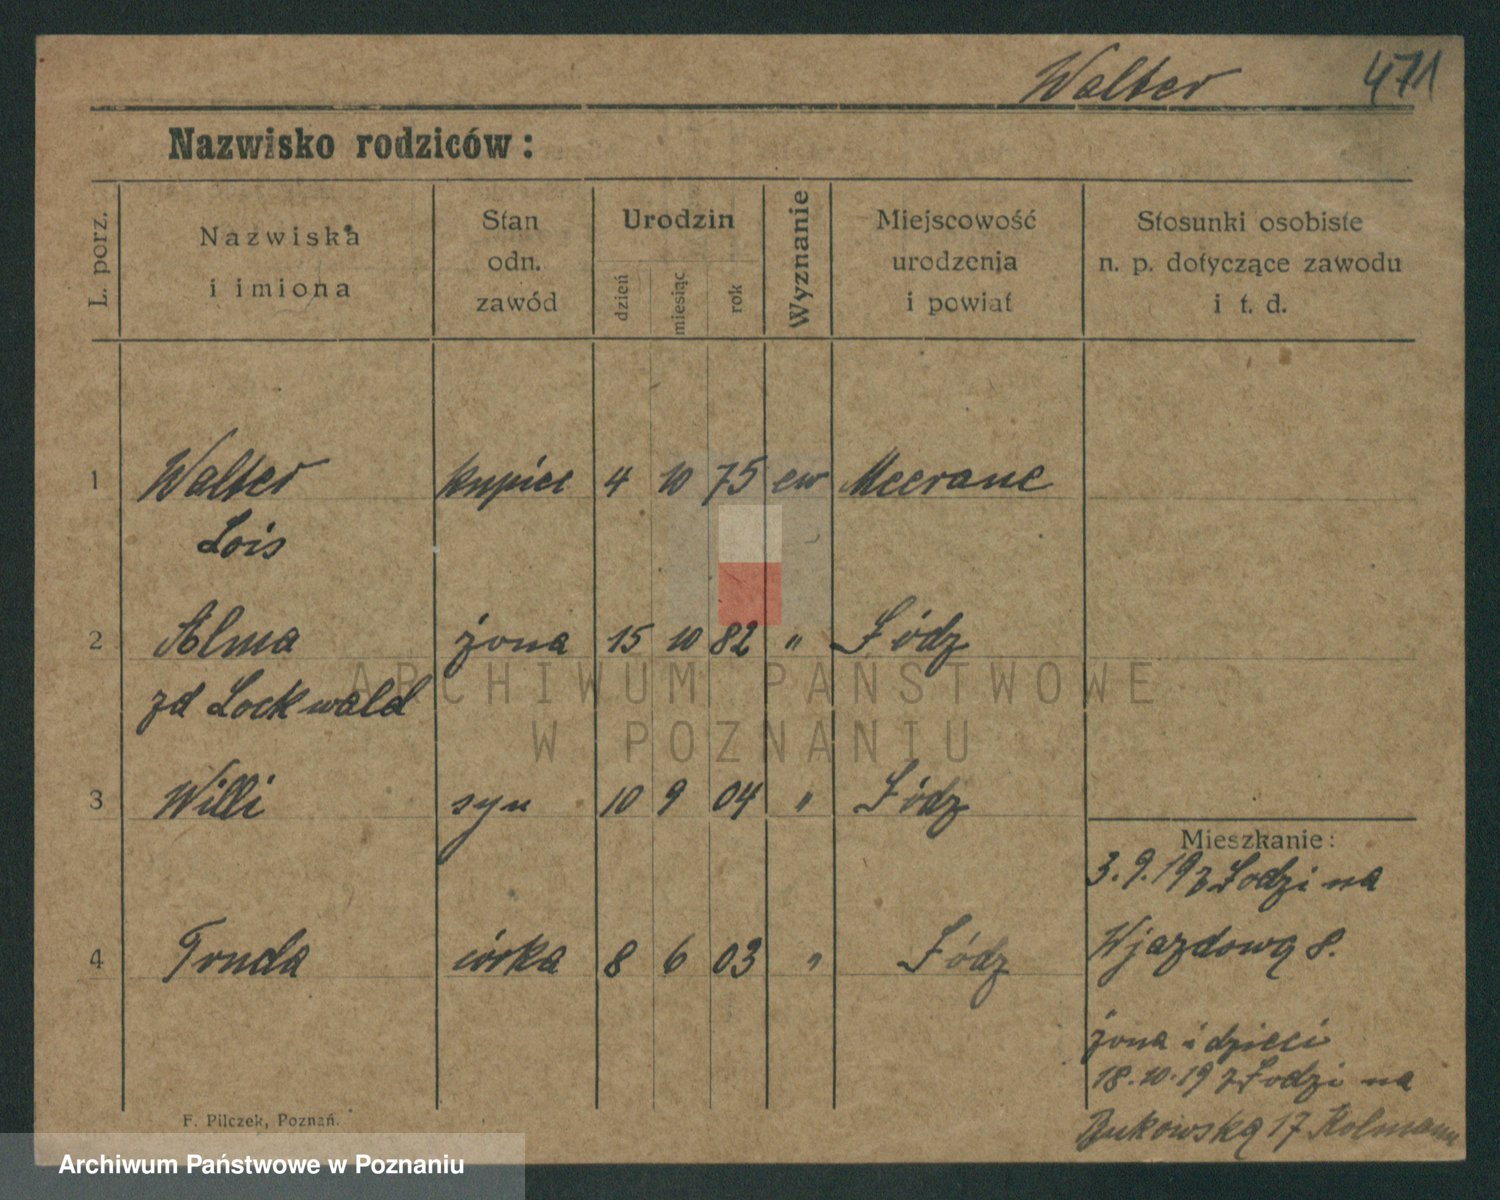 Walter 471
Nazwisko rodziców:
L. porz.
Nazwiska
i imiona
Stan
odn.
zawód
Urodzin
dzień
miesiąc
rok
Wyznanie
Miejscowość
urodzenia
i powiat
Stosunki osobiste
n. p. dotyczące zawodu
i t. d.
1 Walter kupiec 4 10 75 ew Meerane
Lois
2 Alma żona 15 10 82 " Łódz
zd Lockwald
3 Willi syn 10 9 04 " Łódz
Mieszkanie:
3.9.19 z Łodzi na
4 Truda córka 8 6 03 " Łódz
Wjazdową 8.
żona i dzieci
18.10.19 z Łodzi na
Bukowską 17 Kolmann
F. Pilczek, Poznań.
ARCHIWUM PAŃSTWOWE
W POZNANIU
Archiwum Państwowe w Poznaniu